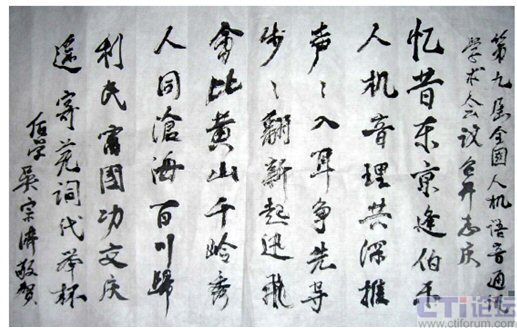 第九届全国人机语音通讯
学术会议召开志庆
忆昔东京逢伯
人机音理共深推
声声入耳争先导
步步翻新起迅飞
会比黄山千岭秀
人同沧海百川归
利民富国功交庆
远寄芜词代举杯
后学吴宗济敬贺
CTI论坛
www.ctiforum.com